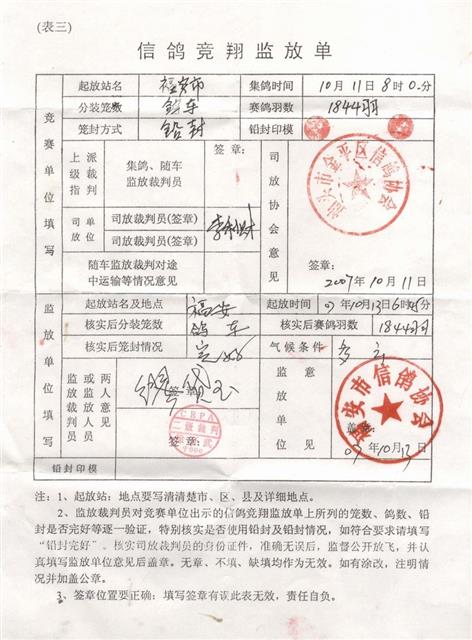 (表三)
信鸽竞翔监放单
竞赛单位填写
起放站名 福安市 集鸽时间 10月11日8时0分
分装笼数 鸽车 赛鸽羽数 1844羽
笼封方式 铅封 铅封印模
上级指 派裁判 集鸽、随车监放裁判员 签章:
司放 单位 司放裁判员(签章)
司放裁判员(签章)
随车监放裁判对途中运输等情况意见
司放协会意见
汕头市金平区信鸽协会
签章:
2007年10月11日
监放单位填写
起放站名及地点 福安 起放时间 07年10月13日6时45分
核实后分装笼数 鸽车 核实后赛鸽羽数 1844羽
核实后笼封情况 完好 气候条件 多云
监放裁判员 或监放人员 两人意见 签章:
签章:
CRPA
二级裁判
监放单位意见
福安市信鸽协会
盖章:
07年10月13日
铅封印模
注:1、起放站:地点要写清清楚市、区、县及详细地点。
2、监放裁判员对竞赛单位出示的信鸽竞翔监放单上所列的笼数、鸽数、铅
封是否完好等逐一验证,特别核实是否使用铅封及铅封情况,如符合要求请填写
“铅封完好”。核实司放裁判员的身份证件,准确无误后,监督公开放飞,并认
真填写监放单位意见后盖章。无章、不填、缺填均作为无效。如有涂改,注明情
况并加盖公章。
3、签章位置要正确;填写签章有误此表无效,责任自负。